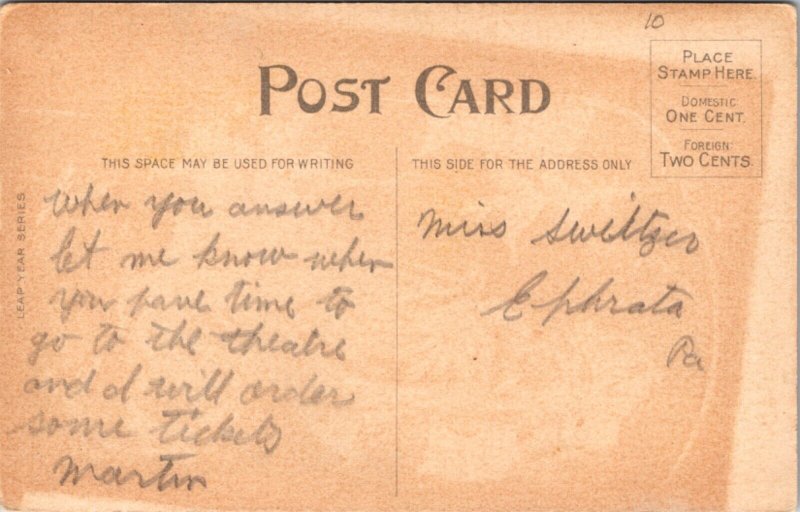 10
POST CARD
PLACE
STAMP HERE.
DOMESTIC:
ONE CENT.
FOREIGN:
TWO CENTS.
THIS SPACE MAY BE USED FOR WRITING
THIS SIDE FOR THE ADDRESS ONLY
LEAP YEAR SERIES
When you answer
let me know when
you have time to
go to the theatre
and I will order
some tickets
Martin
Miss Sweitzer
Ephrata
Pa